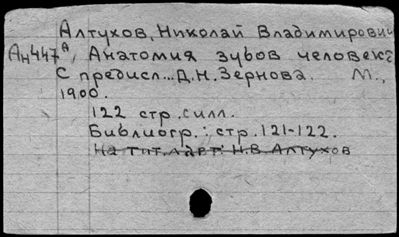 Алтухов, Николай Владимирович
Ан447а, Анатомия зубов человека
С предисл... Д.Н. Зернова. М.,
1900.
122 стр. с илл.
Библиогр.: стр. 121-122.
На тит. л. авт: Н.В. Алтухов